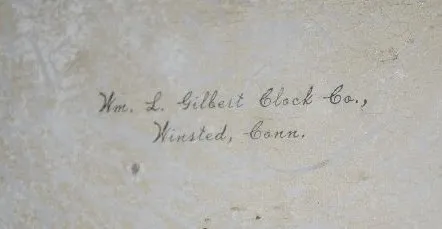 Wm. L. Gilbert Clock Co.,
Winsted, Conn.